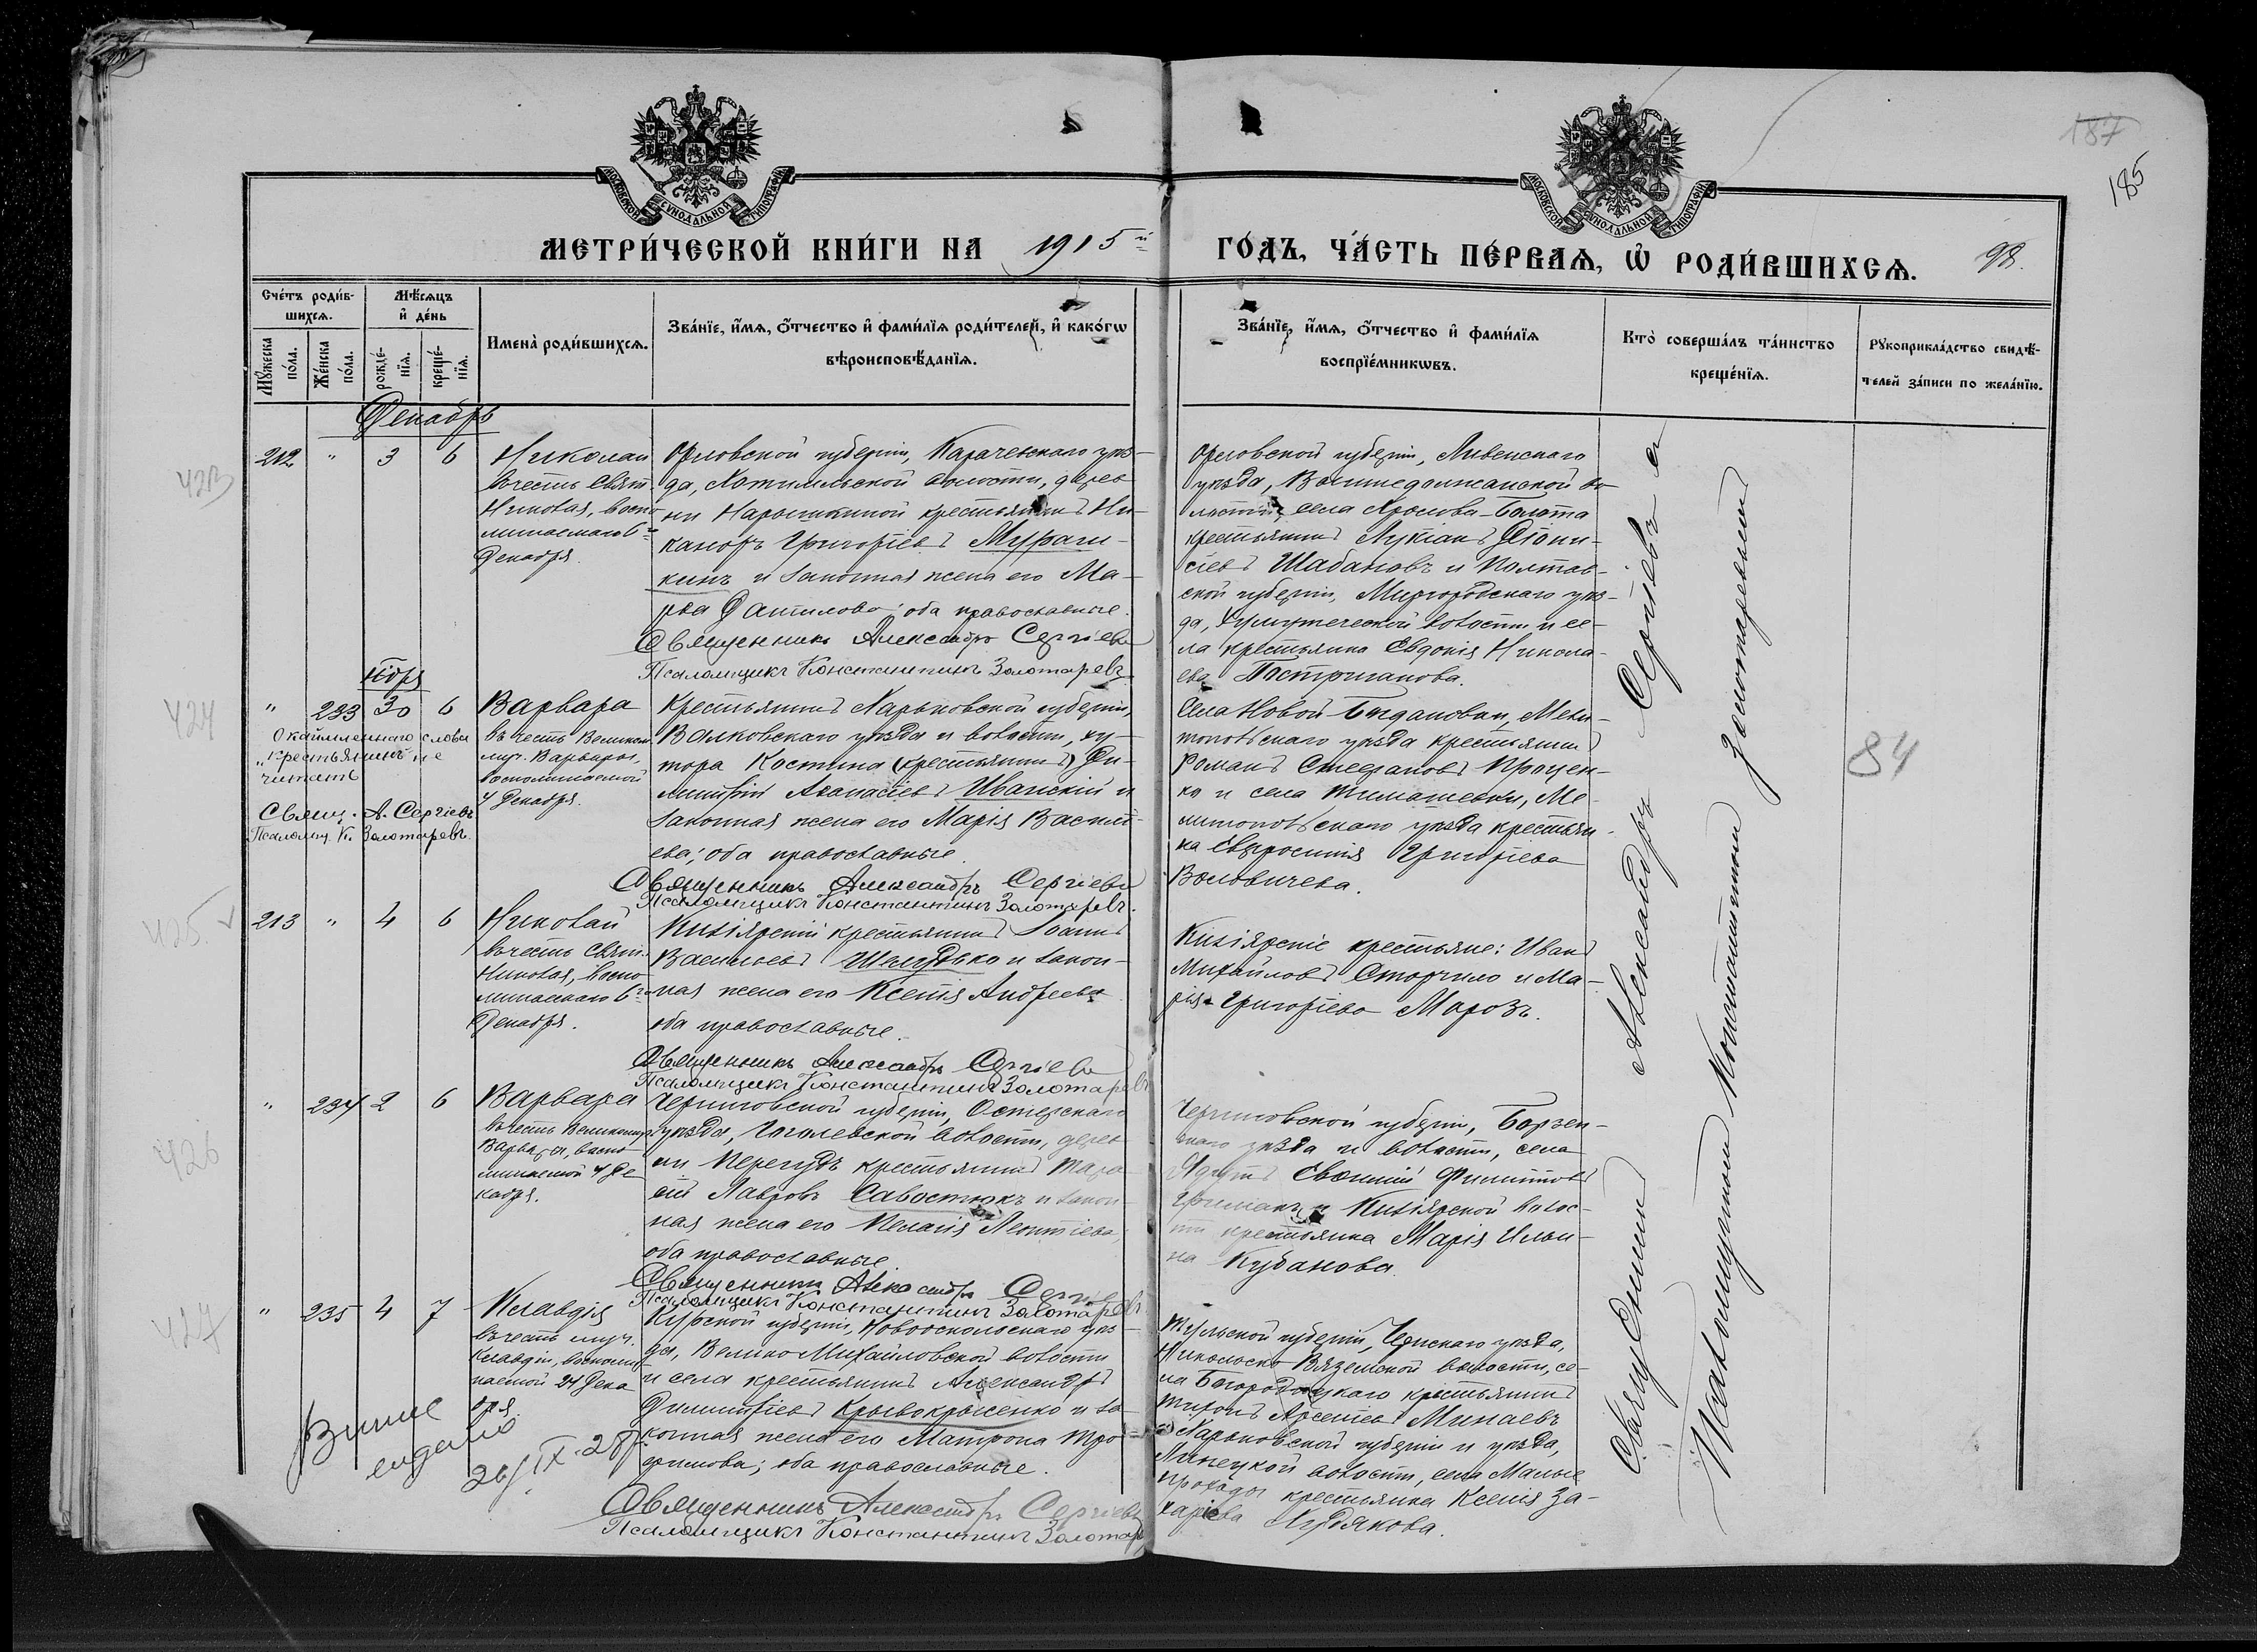 187
185
МОСКОВСКОЙ СѴНОДАЛЬНОЙ ТИПОГРАФІИ
МОСКОВСКОЙ СѴНОДАЛЬНОЙ ТИПОГРАФІИ
МЕТРИ́ЧЕСКОЙ КНИ́ГИ НА 1915й
ГО́ДЪ, ЧА́СТЬ ПЕ́РВАѦ, Ѡ҆ РОДИ́ВШИХСѦ. 98.
Сче́тъ роди́в-
шихсѧ.
Мꙋ́жеска по́ла.
Же́нска по́ла.
Мѣ́сѧцъ
и҆ де́нь
рожде́-
нїѧ.
креще́-
нїѧ.
Имена̀ роди́вшихсѧ.
Зва́нїе, и҆́мѧ, ѻ҆́тчество и҆ фами́лїѧ роди́телей, и҆ како́гѡ
вѣроисповѣ́данїѧ.
Зва́нїе, и҆́мѧ, ѻ҆́тчество и҆ фами́лїѧ
воспрїе́мникѡвъ.
Кто̀ соверша́лъ та́инство
креще́нїѧ.
Рꙋкоприкла́дство свидѣ́-
телей за́писи по жела́нїю.
Декабрь
423
212 " 3 6
Николай
въ честь Свят.
Николая, воспо
минаемаго 6го
Декабря.
Орловской губерніи, Карачевскаго уѣз-
да, Хотимльской волости, дерев-
ни Нарышкиной крестьянинъ Ни-
каноръ Григоріевъ Мураш-
кинъ и законная жена его Ма-
рѳа Данилова; оба православные.
Священникъ Александръ Сергіевъ
Псаломщикъ Константинъ Золотаревъ.
Орловской губерніи, Ливенскаго
уѣзда, Вышнедолжанской во-
лости, села Хрипова-Болота
крестьянинъ Лукіанъ Діони-
сіевъ Шабановъ и Полтав-
ской губерніи, Миргородскаго уѣз-
да, волости и се-
ла крестьянка Евдокія Никола-
ева Постриганова.
Нбря
424
" 233 30 6
Окаймленнаго слова
"крестьянинъ" не
читать
Свящ. А. Сергіевъ
Псаломщ. К. Золотаревъ.
Варвара
въ честь Великом
муч. Варвары,
воспоминаемой
4 Декабря.
Крестьянинъ Харьковской губерніи,
Валковскаго уѣзда и волости, ху-
тора Костина (крестьянинъ) Ди-
митрій Аѳанасіевъ Иванскій и
законная жена его Марія Василі-
ева; оба православные.
Священникъ Александръ Сергіевъ
Псаломщикъ Константинъ Золотаревъ.
Села Новой Богдановки, Мели-
топольскаго уѣзда крестьянинъ
Романъ Стефановъ Процен-
ко и села Тимошевки, Ме-
литопольскаго уѣзда крестьян-
ка Евфросинія Григоріева
Воловичева.
84
425.
213 " 4 6
Николай
въ честь Свят.
Николая, воспо
минаемаго 6го
Декабря.
Кизіярскій крестьянинъ Іоаннъ
Васильевъ Шелудько и закон-
ная жена его Ксенія Андреева
оба православные.
Священникъ Александръ Сергіевъ
Псаломщикъ Константинъ Золотаревъ
Кизіярскіе крестьяне: Иванъ
Михайловъ Сторчило и Ма-
рія Григоріева Морозъ.
426
" 234 2 6
Варвара
въ честь Великомуч
Варвары, воспо
минаемой 4 Де
кабря.
Черниговской губерніи, Остерскаго
уѣзда, Гоголевской волости, дерев
ни Перегудъ крестьянинъ Тара-
сій Лавровъ Савостюкъ и закон-
ная жена его Пелагія Леонтіева,
оба православные.
Священникъ Александръ Сергіевъ
Псаломщикъ Константинъ Золотаревъ
Черниговской губерніи, Борзен-
скаго уѣзда и волости, села
Евѳимій Филиповъ
и Кизіярской волос-
ти крестьянка Марія Ильи-
на Кубанова.
427
" 235 4 7
Клавдія
въ честь муч.
Клавдіи, воспоми
наемой 24 Дека
бря.
Курской губерніи, Новооскольскаго уѣз-
да, Велико Михайловской волости
и села крестьянинъ Александръ
Димитріевъ Крывокрысенко и за-
конная жена его Матрона Тро-
фимова; оба православные.
Священникъ Александръ Сергіевъ
Псаломщикъ Константинъ Золотарев
Тульской губерніи, Чернскаго уѣзда,
Никольско Вяземской волости, се-
ла Богородицкаго крестьянинъ
Тихонъ Арсеніевъ Минаевъ
и Харьковской губерніи и уѣзда,
Липецкой волости, села Малые
Проходы крестьянка Ксенія За-
харіева Худякова.
26/IX-28
Священникъ Александръ Сергіевъ съ
Псаломщикомъ Константиномъ Золотаревымъ